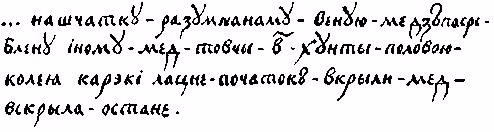 ... на шчатку - разумнаному - веную - медзвпасре-
блену іному - мед - товчы - в - хунты - половою -
колена карэкі лацне - початокъ - вкрыли - мед -
вскрыла - остане.